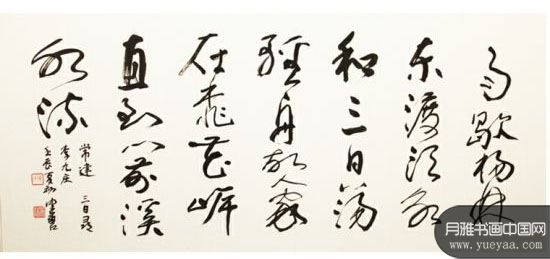 雨歇杨林
东渡头永
和三日荡
轻舟故人家
在桃花岸
直到门前溪
水流
常建 三日寻
李九庄
壬辰夏初
月雅书画中国网
www.yueyaa.com